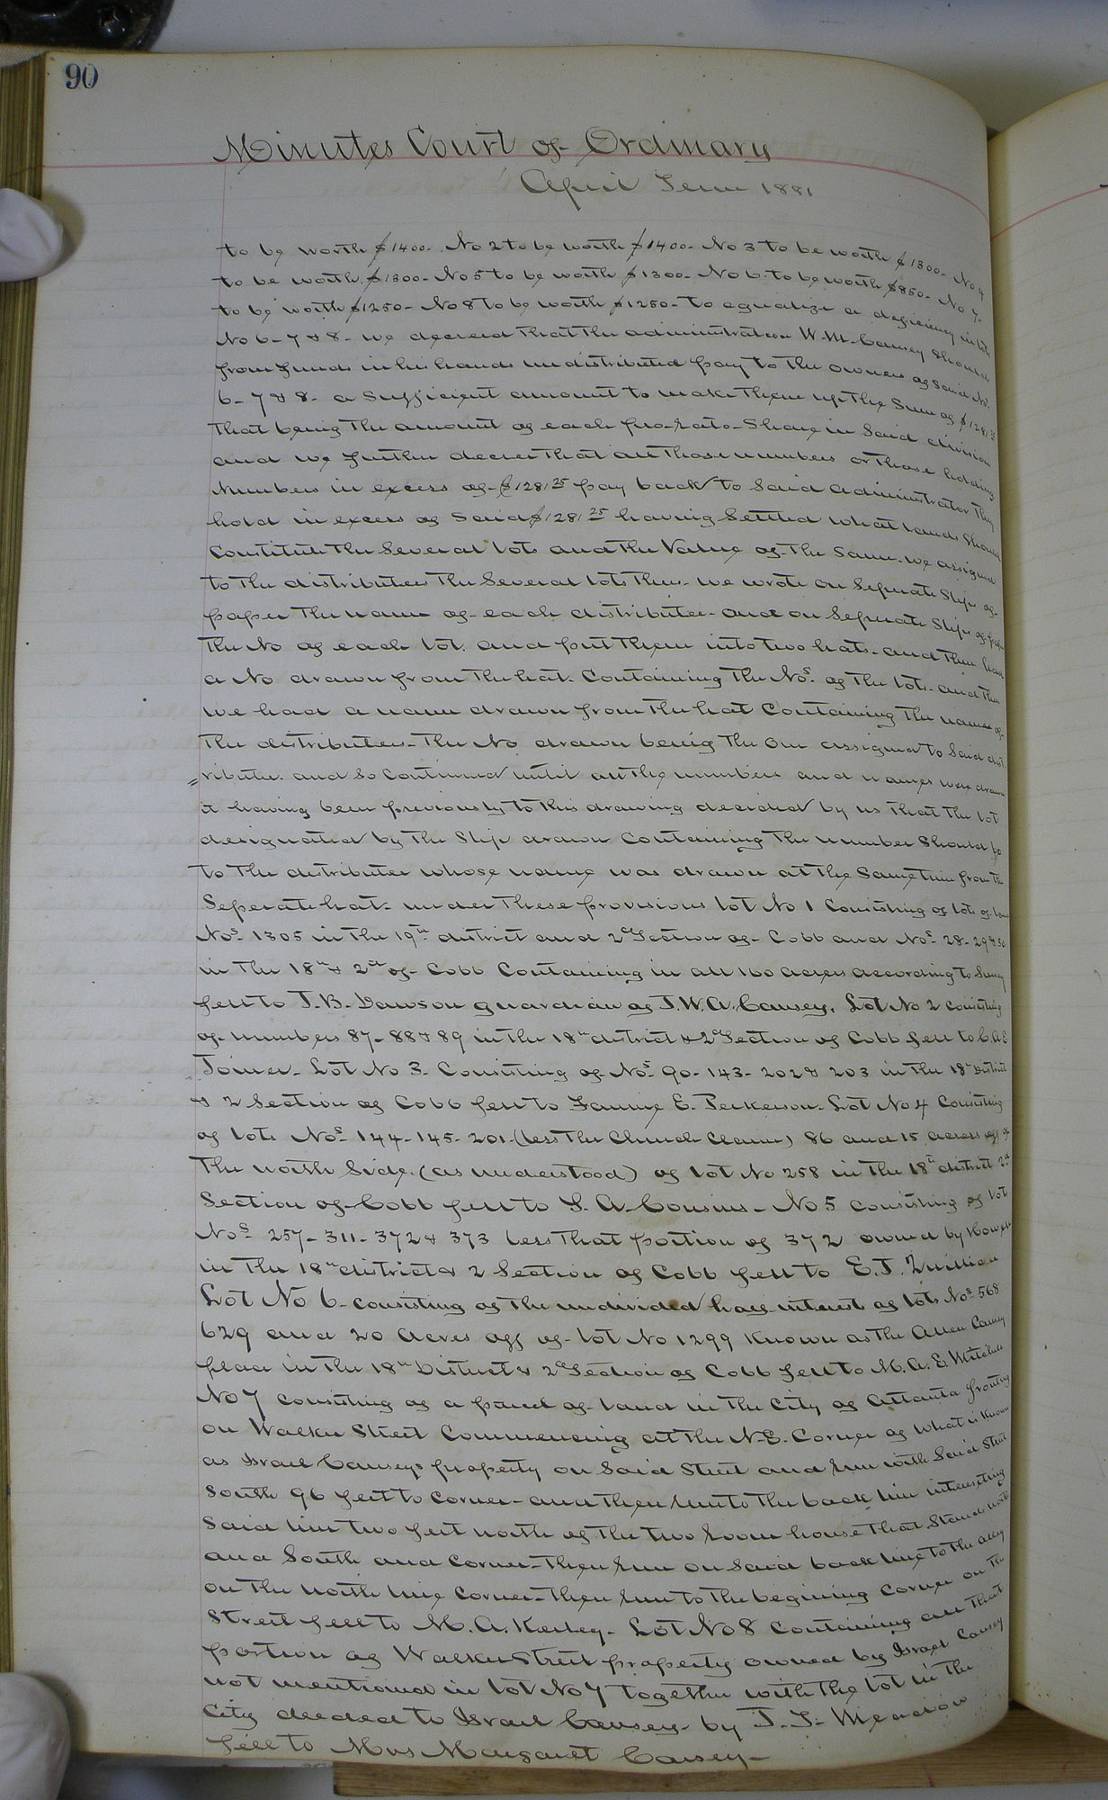 90
Minutes Court of Ordinary
April Term 1881
to be worth $1400. No 2 to be worth $1400- No 3 to be worth $1300- No 4
to be worth $1300- No 5 to be worth $1300- No 6 to be worth $850- No 7
to be worth $1250- No 8 to be worth $1250- to equalize a deficiency in lots
No 6-7 & 8- we decreed that the administrator W. M. Causey should
from funds in his hands undistributed pay to the owners of said No.
6-7 & 8- a sufficient amount to make them up the sum of $1281 25
that being the amount of each pro-rata-share in said division
and we further decree that all those numbers or those holding
numbers in excess of $1281 25 pay back to said administrator they
hold in excess of said $1281 25 having settled what lands should
constitute the several lots and the value of the same. we assigned
to the distributees the several lots thus. we wrote on seperate slips of
paper the name of each distributee- and on seperate slips of paper
the No of each lot. and put them into two hats- and then had
a No drawn from the hat. containing the Nos. of the lots. and then
we had a name drawn from the hat containing the names of
the distributees- the No drawn being the one assigned to said dist
=ributee. and so continued until all the numbers and names was drawn
it having been previously to this drawing decided by us that the lot
designated by the slip drawn containing the number should go
to the distributee whose name was drawn at the same time from the
seperate hat- under these provisions lot No 1 consisting of lots of land
Nos. 1305 in the 19th district and 2d Section of Cobb and Nos. 28-29 & 30
in the 18th & 2d of Cobb containing in all 160 acres according to survey
fell to J. B. Dawson guardian of J. W. A. Causey. Lot No 2 consisting
of numbers 87-88 & 89 in the 18th district & 2d Section of Cobb fell to C. A. E
Joiner- Lot No 3- consisting of Nos. 90-143-202 & 203 in the 18th District
& 2 Section of Cobb fell to Fannie E. Perkerson- Lot No 4 consisting
of lots Nos. 144-145-201-(less the Church Claim) 86 and 15 acres off of
the north side. (as understood) of lot No 258 in the 18th district 2d
Section of Cobb fell to S. A. Cousins- No 5 consisting of lot
Nos. 257-311-372 & 373 less that portion of 372 owned by
in the 18th district & 2 Section of Cobb fell to E. J. Quillian
Lot No 6- consisting of the undivided half interest of lots Nos. 568
629 and 20 acres off of lot No 1299 known as the Allen Causey
place in the 18th District & 2d Section of Cobb fell to M. A. E. Mitchell
No 7 consisting of a parcel of land in the city of Atlanta fronting
on Walker Street commencing at the N.E. corner of what is known
as Israel Causeys property on said street and run with said street
south 96 feet to corner- and then run to the back line intersecting
said line two feet north of the two room house that stands north
and south and corner- then run on said back line to the alley
on the north line corner- then run to the begining corner on the
street fell to M. A. Kerley- Lot No 8 containing all that
portion of Walker Street property owned by Israel Causey
not mentioned in lot No 7 together with the lot in the
city deeded to Israel Causey- by J. J. Meador
fell to Mrs Margaret Causey-